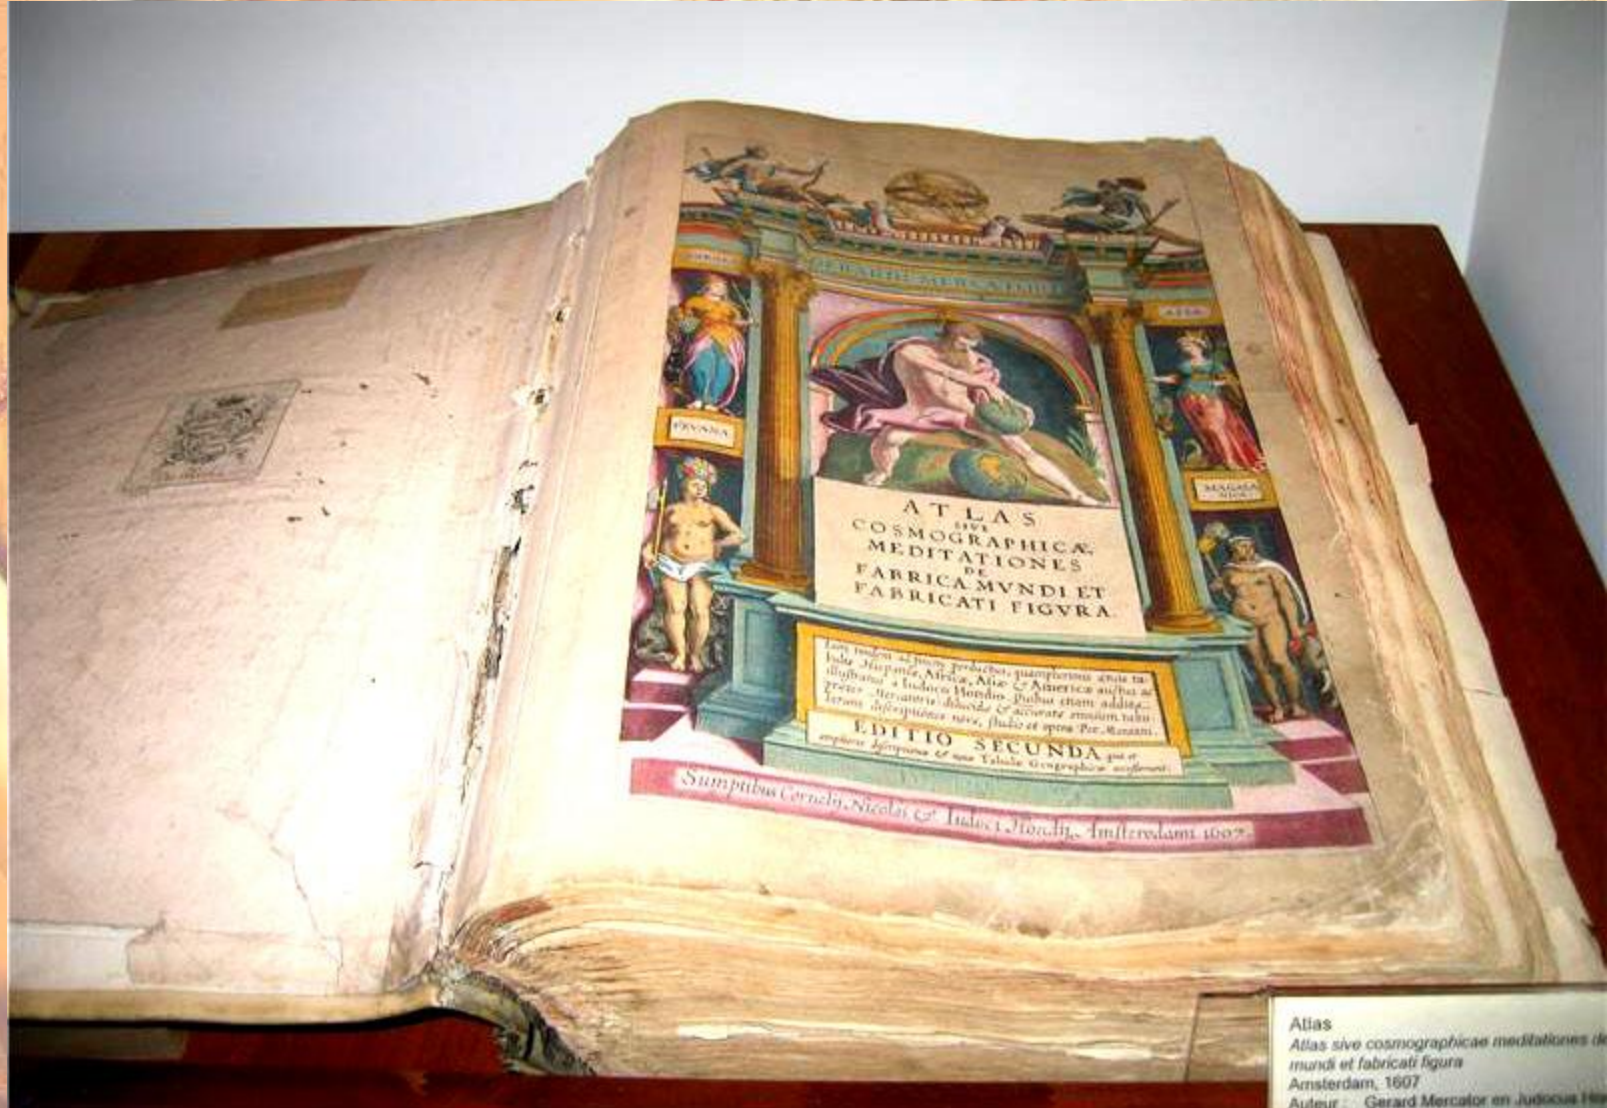 GERARDI MERCATORIS
ASIA
PERVANA
MAGALA
NICA
ATLAS
SIVE
COSMOGRAPHICÆ
MEDITATIONES
DE
FABRICA MVNDI ET
FABRICATI FIGVRA
Iam tandem ad finem perductus, quamplurimis æneis ta-
bulis Hispaniæ, Africæ, Asiæ & Americæ auctus ac
illustratus a Iudoco Hondio. Quibus etiam additæ
præter Mercatoris dilucidæ & accuratæ omnium tabu-
larum descriptiones novæ, studio et opera Pet. Montani.
EDITIO SECUNDA qua et
ampliores descriptiones & novæ Tabulæ Geographicæ accesserunt.
Sumptibus Cornelij Nicolai & Iudoci Hondij, Amsterodami 1607.
Atlas
Atlas sive cosmographicae meditationes de
mundi et fabricati figura
Amsterdam, 1607
Auteur : Gerard Mercator en Judocus